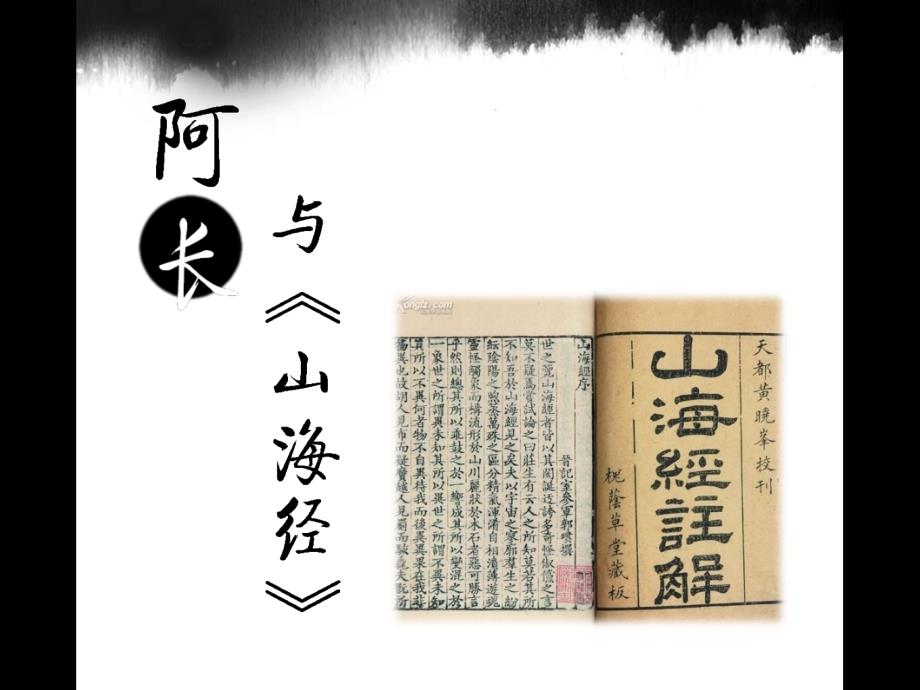 阿长
与《山海经》
天都黃曉峯校刊
山海經註解
槐蔭草堂藏板
山海經序
晉記室參軍郭璞撰
世之覽山海經者皆以其閎誕迂誇多奇怪俶儻之言
莫不疑焉嘗試論之曰莊生有云人之所知莫若其所
不知吾於山海經見之矣夫以宇宙之寥廓羣生之紛
紜陰陽之煦蒸萬殊之區分精氣渾淆自相濆薄遊魂
靈怪觸象而構流形於山川麗狀於木石者惡可勝言
乎然則總其所以乖鼓之於一響成其所以變混之於
一象世之所謂異未知其所以異世之所謂不異未知
其所以不異何者物不自異待我而後異異果在我非
物異也故胡人見布而疑黂越人見罽而駭毳夫翫所